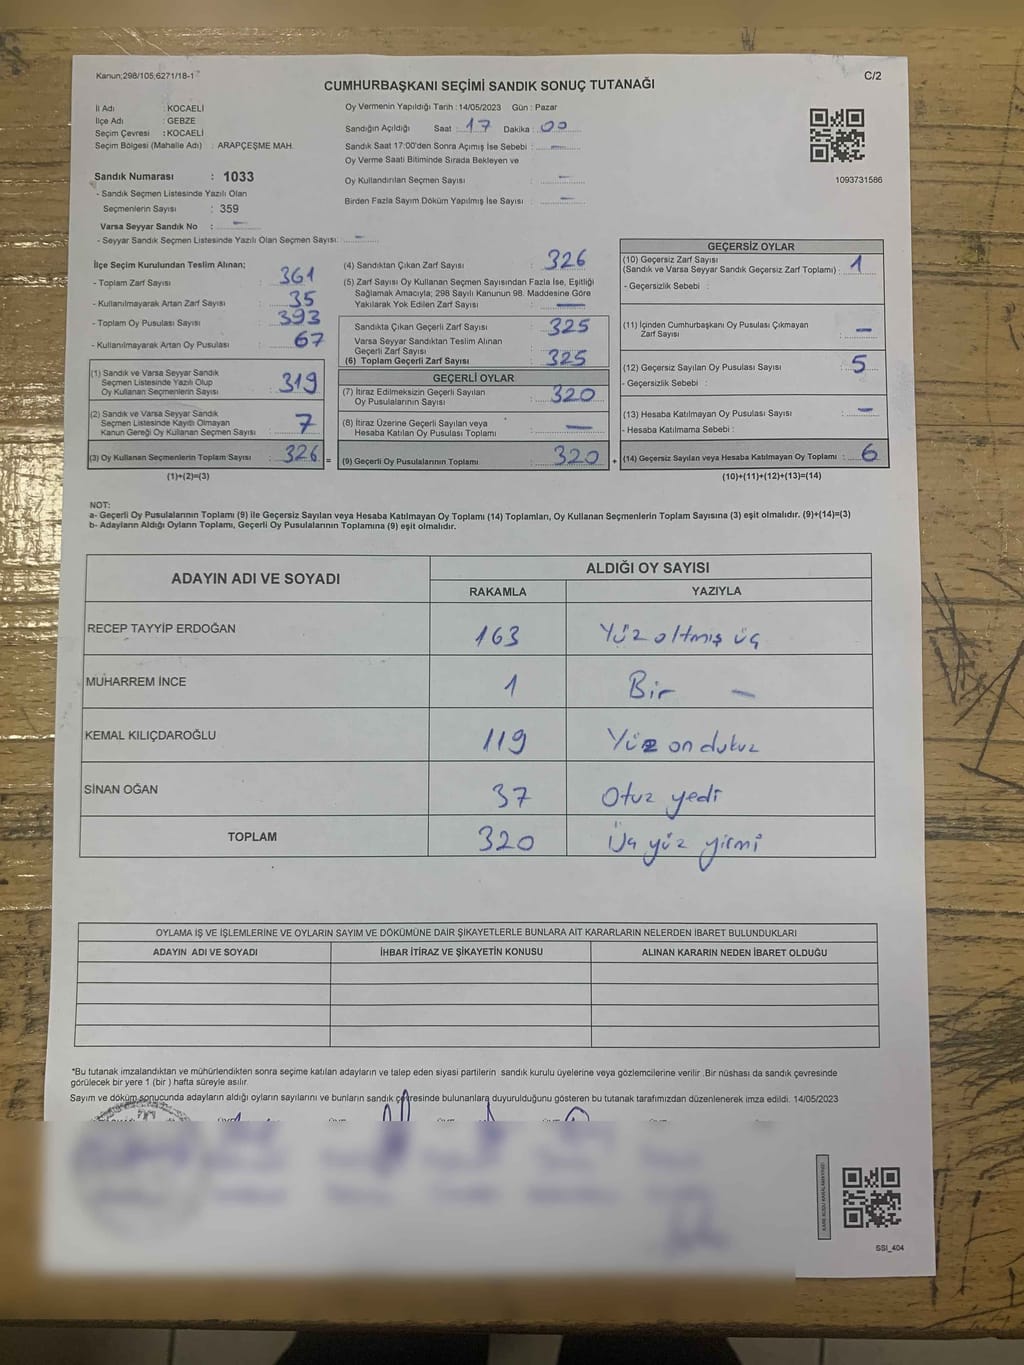 Kanun;298/105,6271/18-1
C/2
CUMHURBAŞKANI SEÇİMİ SANDIK SONUÇ TUTANAĞI
İl Adı : KOCAELİ
İlçe Adı : GEBZE
Seçim Çevresi : KOCAELİ
Seçim Bölgesi (Mahalle Adı) : ARAPÇEŞME MAH.
Sandık Numarası : 1033
- Sandık Seçmen Listesinde Yazılı Olan
Seçmenlerin Sayısı : 359
Varsa Seyyar Sandık No : -
- Seyyar Sandık Seçmen Listesinde Yazılı Olan Seçmen Sayısı: -
Oy Vermenin Yapıldığı Tarih : 14/05/2023 Gün : Pazar
Sandığın Açıldığı Saat : 17 Dakika : 00
Sandık Saat 17:00'den Sonra Açımış İse Sebebi : -
Oy Verme Saati Bitiminde Sırada Bekleyen ve
Oy Kullandırılan Seçmen Sayısı : -
Birden Fazla Sayım Döküm Yapılmış İse Sayısı : -
1093731586
İlçe Seçim Kurulundan Teslim Alınan;
- Toplam Zarf Sayısı : 361
- Kullanılmayarak Artan Zarf Sayısı : 35
- Toplam Oy Pusulası Sayısı : 393
- Kullanılmayarak Artan Oy Pusulası : 67
(1) Sandık ve Varsa Seyyar Sandık
Seçmen Listesinde Yazılı Olup
Oy Kullanan Seçmenlerin Sayısı : 319
(2) Sandık ve Varsa Seyyar Sandık
Seçmen Listesinde Kayıtlı Olmayan
Kanun Gereği Oy Kullanan Seçmen Sayısı : 7
(3) Oy Kullanan Seçmenlerin Toplam Sayısı : 326 =
(1)+(2)=(3)
(4) Sandıktan Çıkan Zarf Sayısı : 326
(5) Zarf Sayısı Oy Kullanan Seçmen Sayısından Fazla İse, Eşitliği
Sağlamak Amacıyla; 298 Sayılı Kanunun 98. Maddesine Göre
Yakılarak Yok Edilen Zarf Sayısı : -
Sandıkta Çıkan Geçerli Zarf Sayısı : 325
Varsa Seyyar Sandıktan Teslim Alınan
Geçerli Zarf Sayısı : -
(6) Toplam Geçerli Zarf Sayısı : 325
GEÇERLİ OYLAR
(7) İtiraz Edilmeksizin Geçerli Sayılan
Oy Pusulalarının Sayısı : 320
(8) İtiraz Üzerine Geçerli Sayılan veya
Hesaba Katılan Oy Pusulası Toplamı : -
(9) Geçerli Oy Pusulalarının Toplamı : 320 +
GEÇERSİZ OYLAR
(10) Geçersiz Zarf Sayısı
(Sandık ve Varsa Seyyar Sandık Geçersiz Zarf Toplamı) : 1
- Geçersizlik Sebebi :
(11) İçinden Cumhurbaşkanı Oy Pusulası Çıkmayan
Zarf Sayısı : -
(12) Geçersiz Sayılan Oy Pusulası Sayısı : 5
- Geçersizlik Sebebi :
(13) Hesaba Katılmayan Oy Pusulası Sayısı : -
- Hesaba Katılmama Sebebi :
(14) Geçersiz Sayılan veya Hesaba Katılmayan Oy Toplamı : 6
(10)+(11)+(12)+(13)=(14)
NOT:
a- Geçerli Oy Pusulalarının Toplamı (9) ile Geçersiz Sayılan veya Hesaba Katılmayan Oy Toplamı (14) Toplamları, Oy Kullanan Seçmenlerin Toplam Sayısına (3) eşit olmalıdır. (9)+(14)=(3)
b- Adayların Aldığı Oyların Toplamı, Geçerli Oy Pusulalarının Toplamına (9) eşit olmalıdır.
ADAYIN ADI VE SOYADI
ALDIĞI OY SAYISI
RAKAMLA YAZIYLA
RECEP TAYYİP ERDOĞAN 163 Yüz altmış üç
MUHARREM İNCE 1 Bir -
KEMAL KILIÇDAROĞLU 119 Yüz on dokuz
SİNAN OĞAN 37 Otuz yedi
TOPLAM 320 Üç yüz yirmi
OYLAMA İŞ VE İŞLEMLERİNE VE OYLARIN SAYIM VE DÖKÜMÜNE DAİR ŞİKAYETLERLE BUNLARA AİT KARARLARIN NELERDEN İBARET BULUNDUKLARI
ADAYIN ADI VE SOYADI İHBAR İTİRAZ VE ŞİKAYETİN KONUSU ALINAN KARARIN NEDEN İBARET OLDUĞU
*Bu tutanak imzalandıktan ve mühürlendikten sonra seçime katılan adayların ve talep eden siyasi partilerin sandık kurulu üyelerine veya gözlemcilerine verilir .Bir nüshası da sandık çevresinde
görülecek bir yere 1 (bir ) hafta süreyle asılır.
Sayım ve döküm sonucunda adayların aldığı oyların sayılarını ve bunların sandık çevresinde bulunanlara duyurulduğunu gösteren bu tutanak tarafımızdan düzenlenerek imza edildi. 14/05/2023
SSI_404